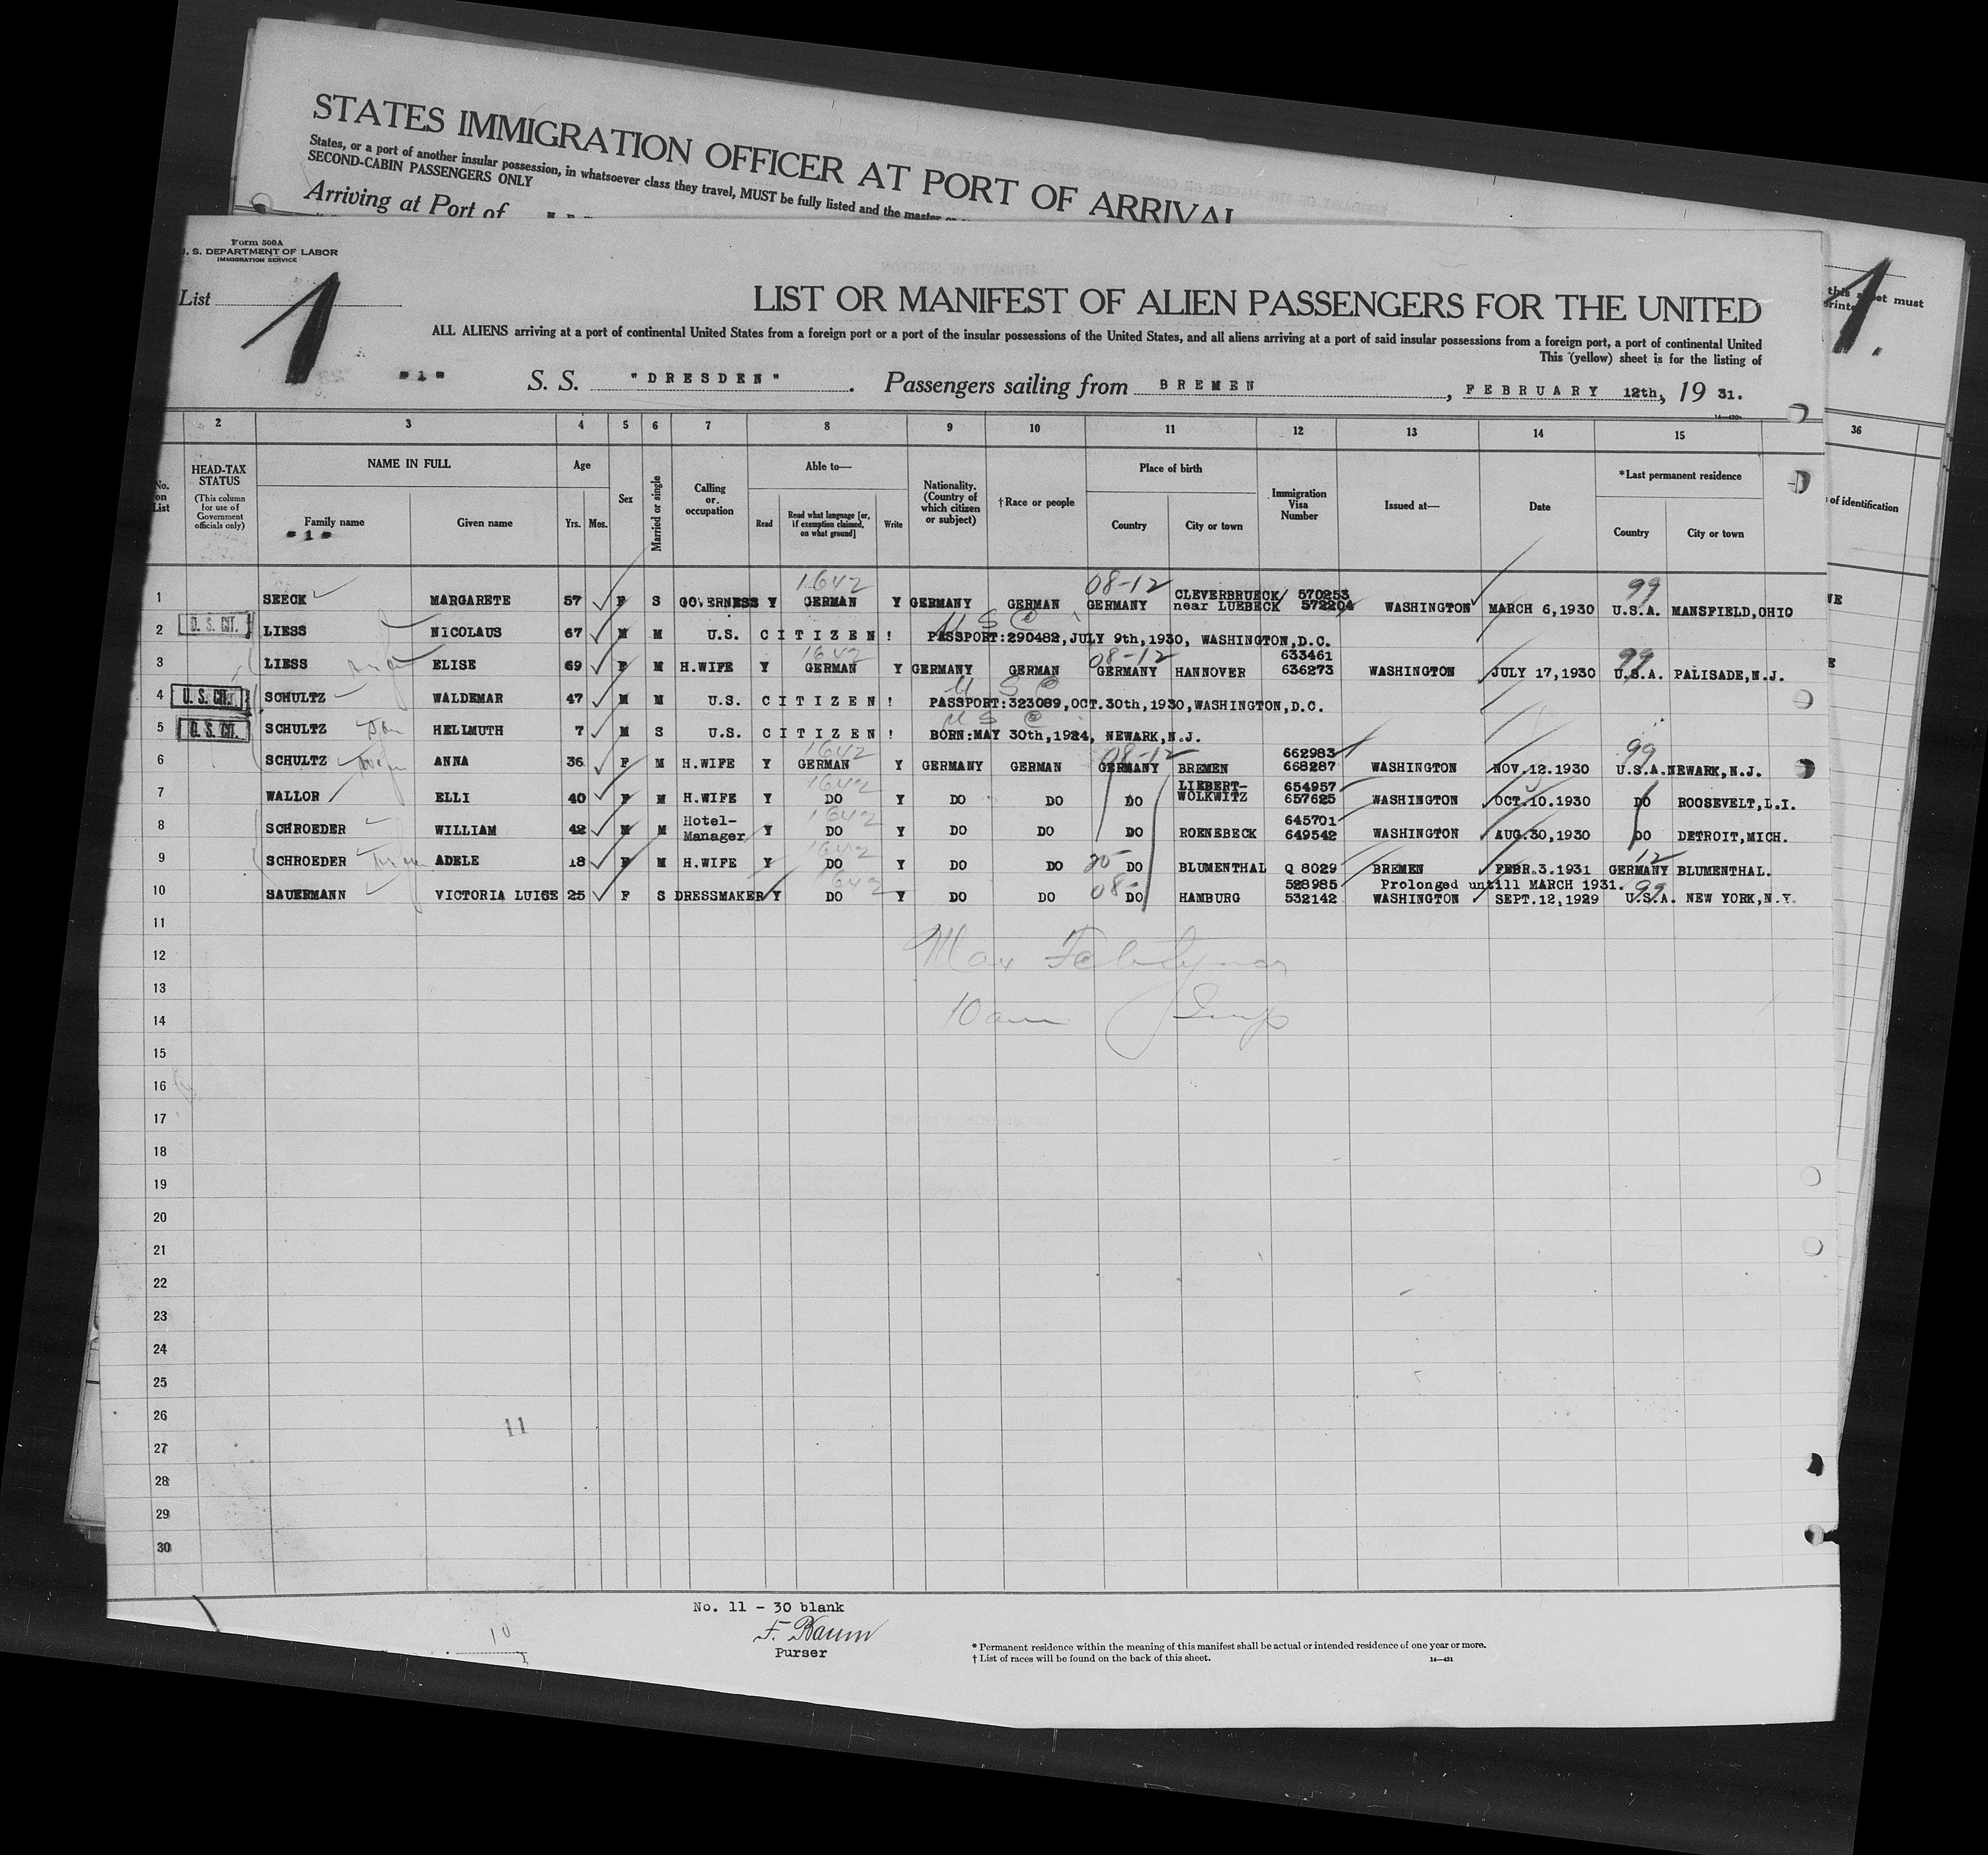 STATES IMMIGRATION OFFICER AT PORT OF ARRIVAL
States, or a port of another insular possession, in whatsoever class they travel, MUST be fully listed and the master or
SECOND-CABIN PASSENGERS ONLY
Arriving at Port of
this sheet must
1.
36
of identification
Form 500A
U. S. DEPARTMENT OF LABOR
IMMIGRATION SERVICE
List 1
LIST OR MANIFEST OF ALIEN PASSENGERS FOR THE UNITED
ALL ALIENS arriving at a port of continental United States from a foreign port or a port of the insular possessions of the United States, and all aliens arriving at a port of said insular possessions from a foreign port, a port of continental United
This (yellow) sheet is for the listing of
"1" S. S. "DRESDEN". Passengers sailing from BREMEN, FEBRUARY 12th, 19 31.
2 3 4 5 6 7 8 9 10 11 12 13 14 15
No. on List HEAD-TAX STATUS (This column for use of Government officials only) NAME IN FULL Family name Given name Age Yrs. Mos. Sex Married or single Calling or occupation Able to— Read Read what language [or, if exemption claimed, on what ground] Write Nationality. (Country of which citizen or subject) †Race or people Place of birth Country City or town Immigration Visa Number Issued at— Date *Last permanent residence Country City or town
"1"
1642 08-12 99
1 SEECK MARGARETE 57 F S GOVERNESS Y GERMAN Y GERMANY GERMAN GERMANY CLEVERBRUECK/ near LUEBECK 570253 572204 WASHINGTON MARCH 6,1930 U.S.A. MANSFIELD,OHIO
U S C
2 U. S. CIT. LIESS NICOLAUS 67 M M U.S. CITIZEN! PASSPORT:290482,JULY 9th,1930, WASHINGTON,D.C.
1642 08-12 99
3 LIESS wife ELISE 69 F M H.WIFE Y GERMAN Y GERMANY GERMAN GERMANY HANNOVER 633461 636273 WASHINGTON JULY 17,1930 U.S.A. PALISADE,N.J.
U S C
4 U. S. CIT. SCHULTZ WALDEMAR 47 M M U.S. CITIZEN! PASSPORT:323089,OCT.30th,1930,WASHINGTON,D.C.
U S C
5 U. S. CIT. SCHULTZ son HELLMUTH 7 M S U.S. CITIZEN! BORN:MAY 30th,1924, NEWARK,N.J.
1642 08-12 99
6 SCHULTZ wife ANNA 36 F M H.WIFE Y GERMAN Y GERMANY GERMAN GERMANY BREMEN 662983 668287 WASHINGTON NOV.12.1930 U.S.A. NEWARK,N.J.
1642
7 WALLOR ELLI 40 F M H.WIFE Y DO Y DO DO DO LIEBERT-WOLKWITZ 654957 657625 WASHINGTON OCT.10.1930 DO ROOSEVELT,L.I.
1642
8 SCHROEDER WILLIAM 42 M M Hotel-Manager Y DO Y DO DO DO ROENEBECK 645701 649542 WASHINGTON AUG.30,1930 DO DETROIT,MICH.
1642 12
9 SCHROEDER wife ADELE 18 F M H.WIFE Y DO Y DO DO DO BLUMENTHAL Q 8029 BREMEN FEBR.3.1931 GERMANY BLUMENTHAL.
Prolonged untill MARCH 1931.
1642 08- 99
10 SAUERMANN VICTORIA LUISE 25 F S DRESSMAKER Y DO Y DO DO DO HAMBURG 528985 532142 WASHINGTON SEPT.12,1929 U.S.A. NEW YORK,N.Y.
11
12
13
14 10 am
15
16
17
18
19
20
21
22
23
24
25
26 11
27
28
29
30
No. 11 - 30 blank
F. Baum
Purser
10
* Permanent residence within the meaning of this manifest shall be actual or intended residence of one year or more.
† List of races will be found on the back of this sheet.
14—431